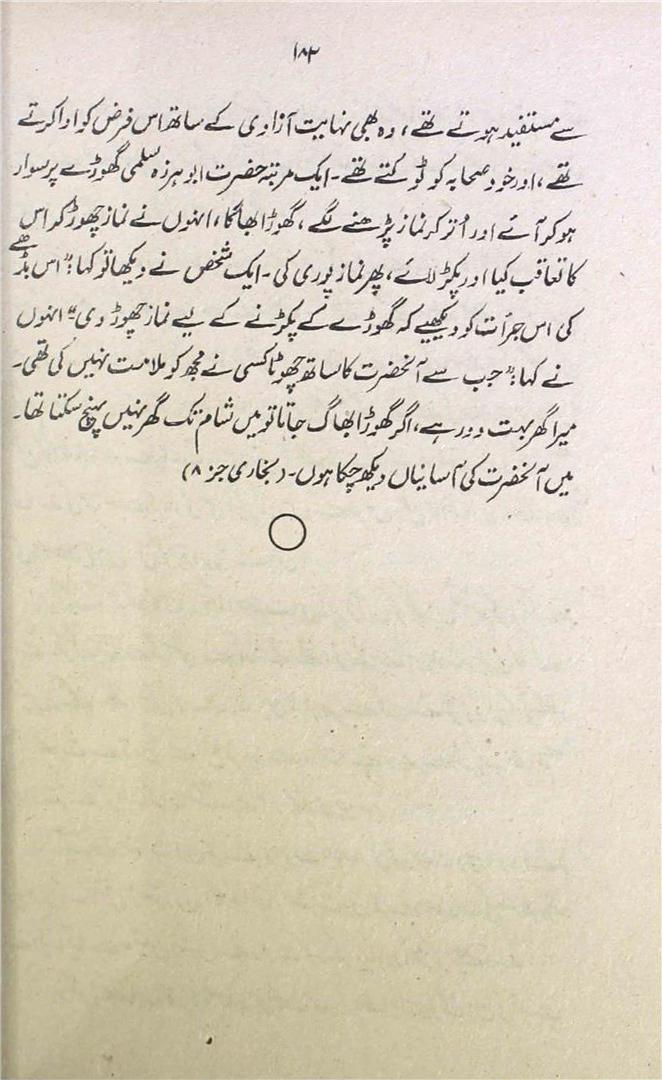 ۱۸۳
سے مستفید ہوتے تھے، وہ بھی نہایت آزادی کے ساتھ اس فرض کو ادا کرتے
تھے، اور خود صحابہ کو ٹوکتے تھے۔ ایک مرتبہ حضرت ابو ہرزہ سلمی گھوڑے پر سوار
ہو کر آئے اور اُتر کر نماز پڑھنے لگے، گھوڑا بھاگا، انہوں نے نماز چھوڑ کر اس
کا تعاقب کیا اور پکڑ لائے، پھر نماز پوری کی۔ ایک شخص نے دیکھا تو کہا: "اس بڈھے
کی اس جرأت کو دیکھیے کہ گھوڑے کے پکڑنے کے لیے نماز چھوڑ دی" انہوں
نے کہا: "جب سے آنحضرت کا ساتھ چھوٹا کسی نے مجھ کو ملامت نہیں کی تھی۔
میرا گھر بہت دور ہے، اگر گھوڑا بھاگ جاتا تو میں شام تک گھر نہیں پہنچ سکتا تھا۔
میں آنحضرت کی آسانیاں دیکھ چکا ہوں۔ (بخاری جز ۸)